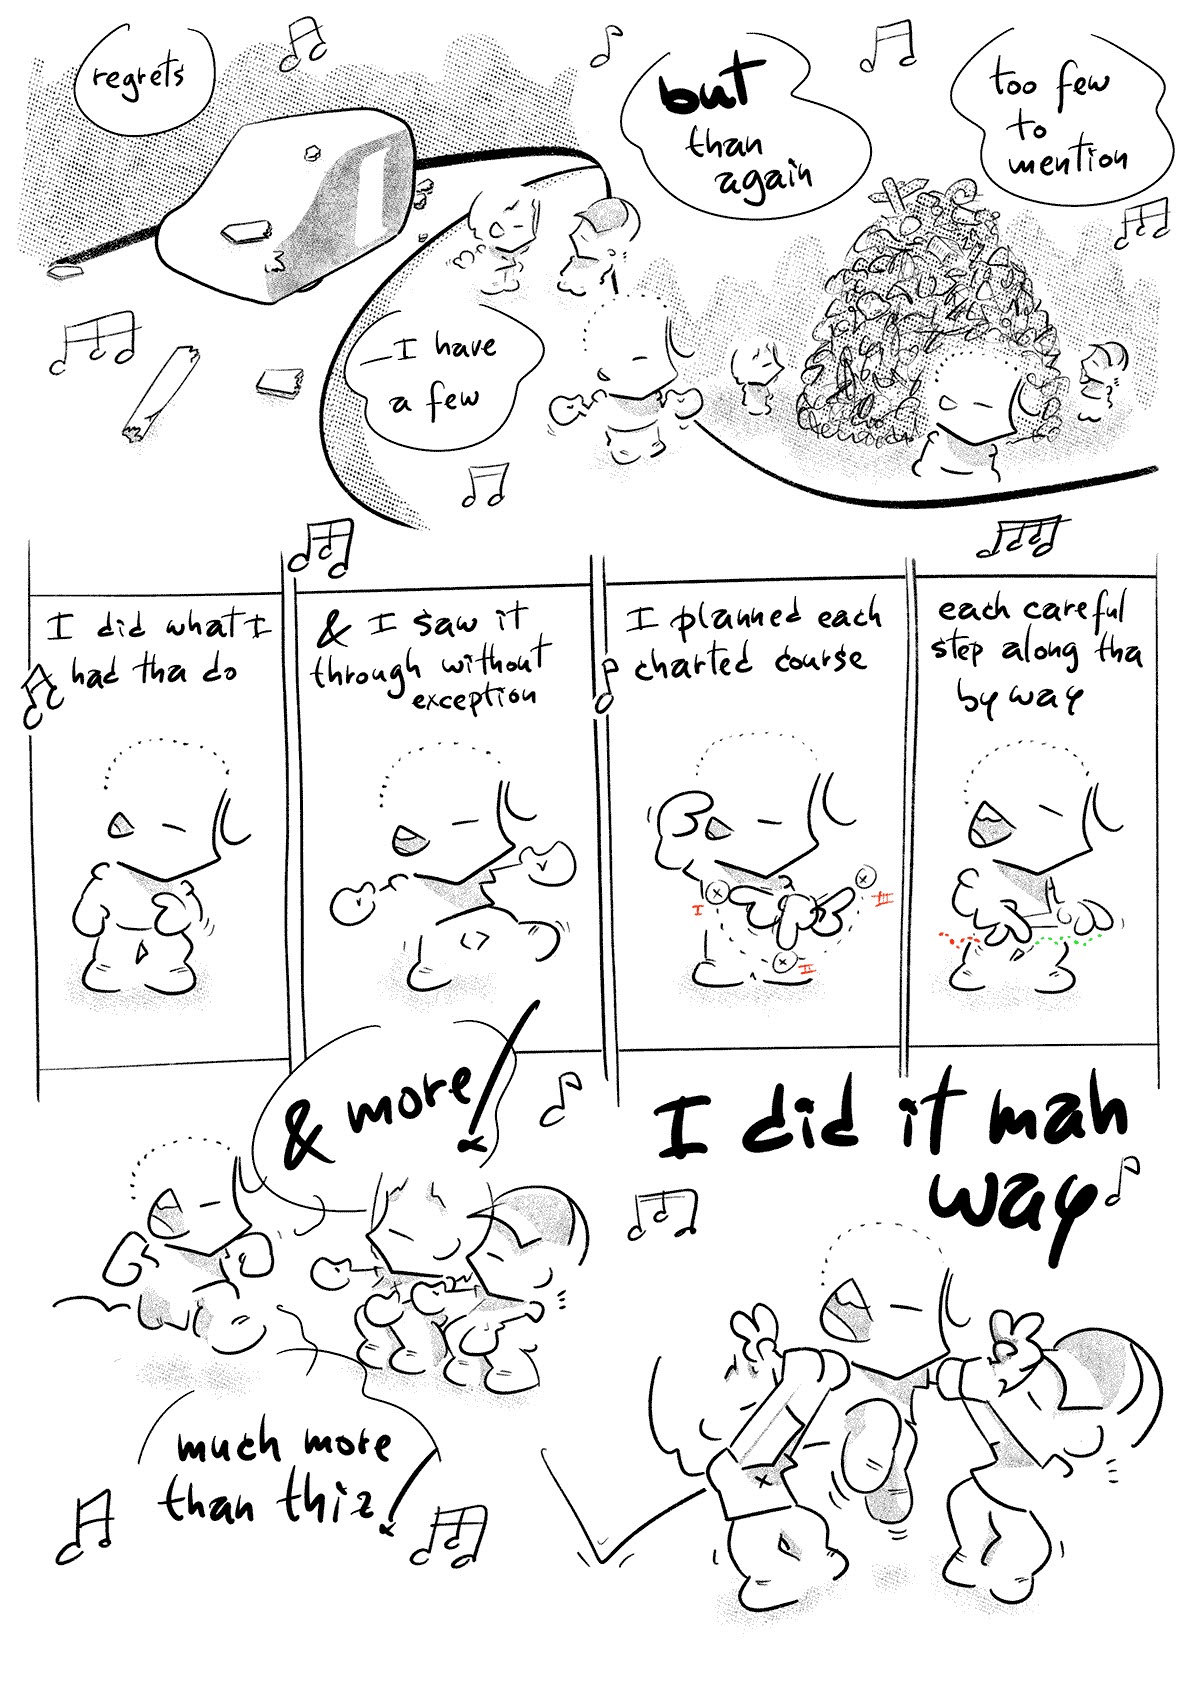 regrets
I have
a few
but
than
again
too few
to
mention
I did what I
had tha do
& I saw it
through without
exception
I planned each
charted course
I
II
III
each careful
step along tha
by way
& more!
much more
than thiz!
I did it mah
way